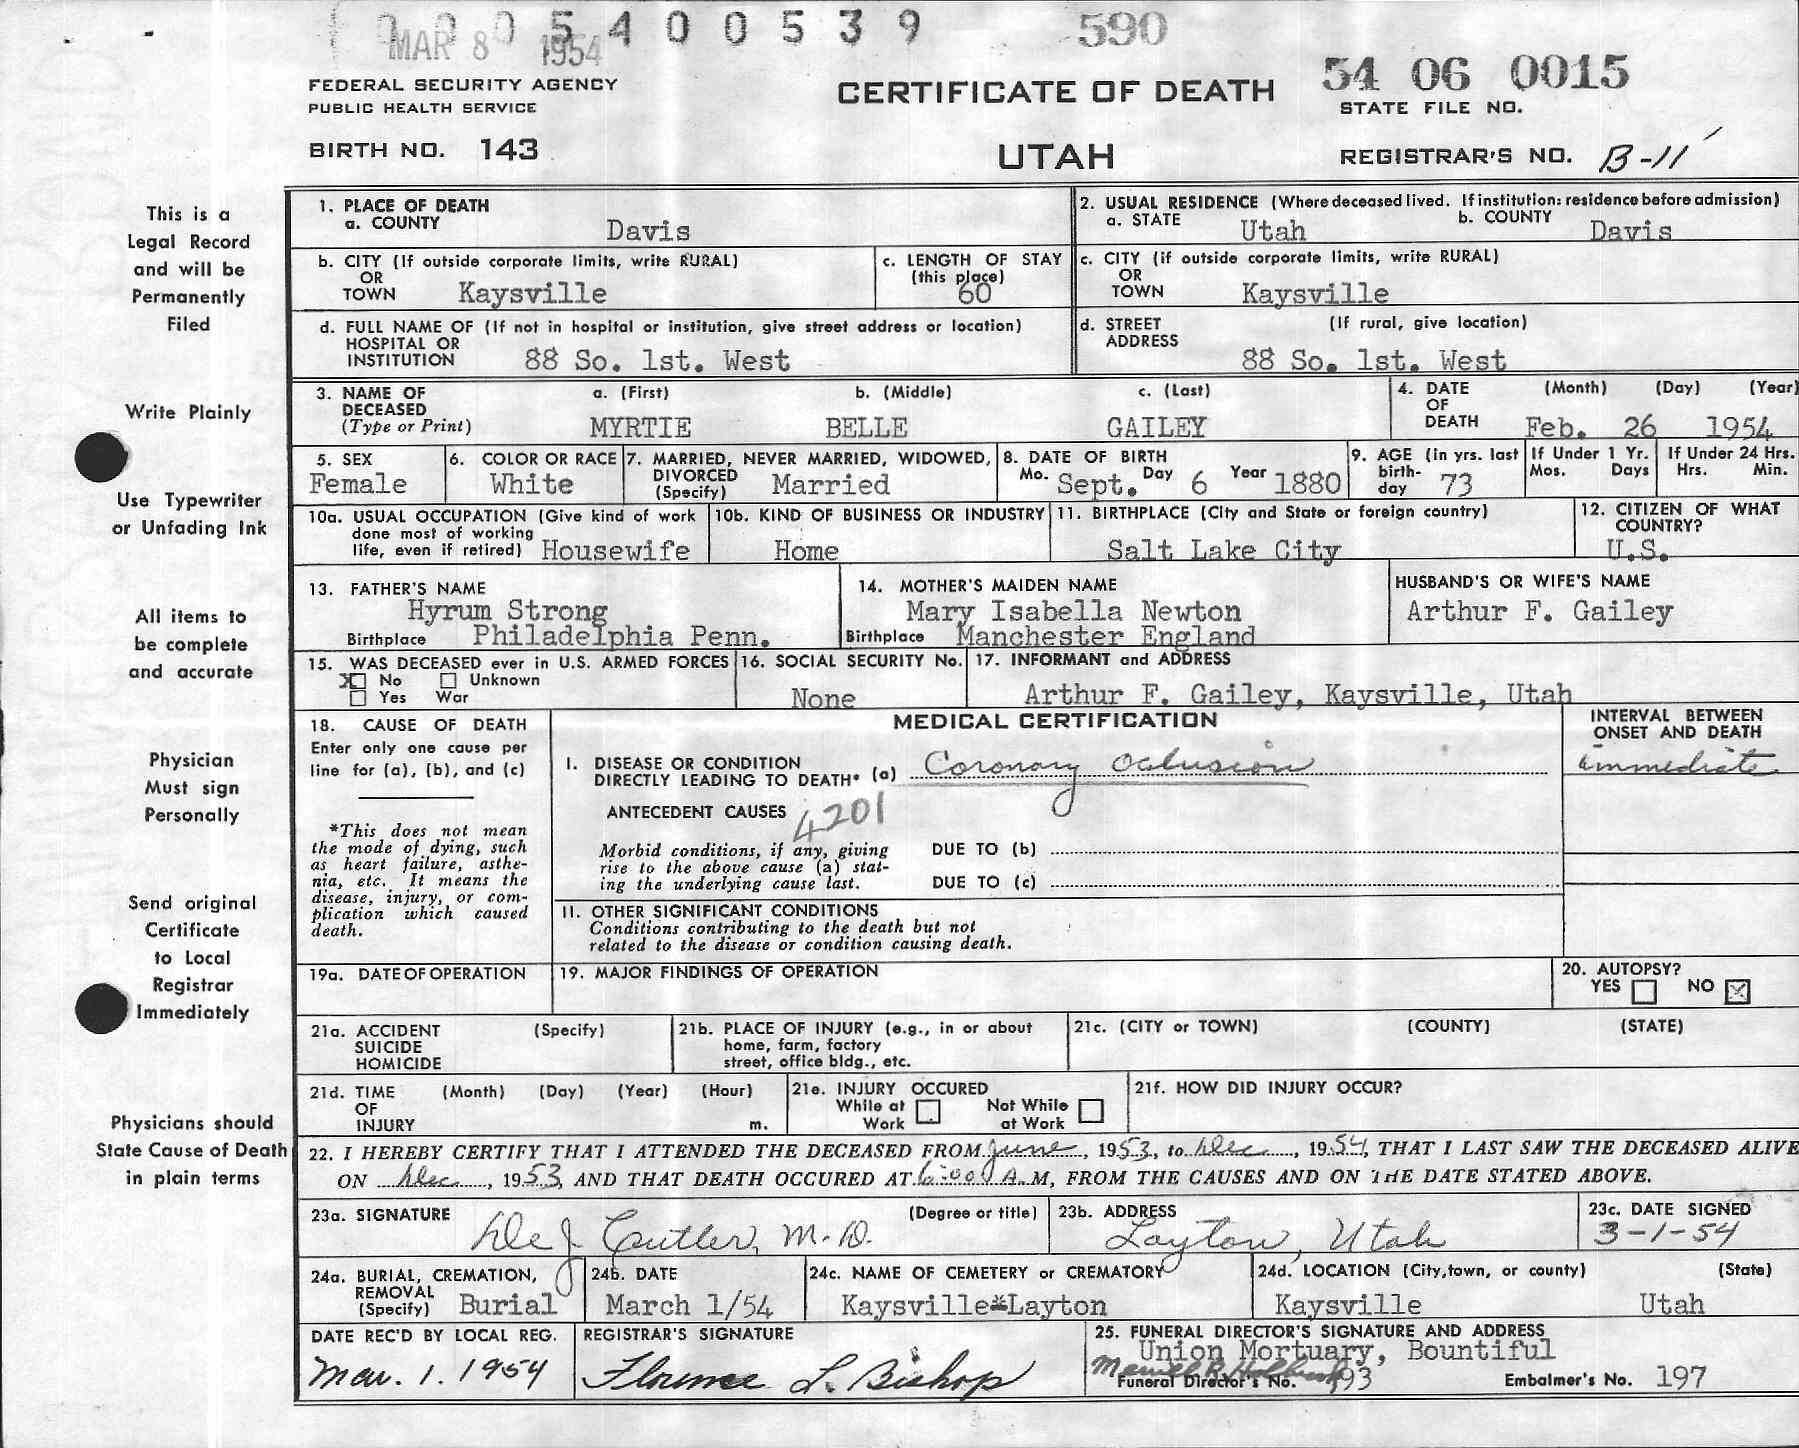 0 0 5 4 0 0 5 3 9 590
MAR 8 1954
FEDERAL SECURITY AGENCY
PUBLIC HEALTH SERVICE
CERTIFICATE OF DEATH
54 06 0015
STATE FILE NO.
BIRTH NO. 143
UTAH
REGISTRAR'S NO. B-11
This is a
Legal Record
and will be
Permanently
Filed
Write Plainly
Use Typewriter
or Unfading Ink
All items to
be complete
and accurate
Physician
Must sign
Personally
Send original
Certificate
to Local
Registrar
Immediately
Physicians should
State Cause of Death
in plain terms
1. PLACE OF DEATH
a. COUNTY Davis
2. USUAL RESIDENCE (Where deceased lived. If institution: residence before admission)
a. STATE Utah b. COUNTY Davis
b. CITY (If outside corporate limits, write RURAL)
OR
TOWN Kaysville
c. LENGTH OF STAY
(this place)
60
c. CITY (if outside corporate limits, write RURAL)
OR
TOWN Kaysville
d. FULL NAME OF (If not in hospital or institution, give street address or location)
HOSPITAL OR
INSTITUTION 88 So. 1st. West
d. STREET (If rural, give location)
ADDRESS
88 So. 1st. West
3. NAME OF a. (First) b. (Middle) c. (Last)
DECEASED
(Type or Print) MYRTIE BELLE GAILEY
4. DATE (Month) (Day) (Year)
OF
DEATH Feb. 26 1954
5. SEX
Female
6. COLOR OR RACE
White
7. MARRIED, NEVER MARRIED, WIDOWED,
DIVORCED
(Specify) Married
8. DATE OF BIRTH
Mo. Sept. Day 6 Year 1880
9. AGE (in yrs. last
birth-
day 73
If Under 1 Yr.
Mos. Days
If Under 24 Hrs.
Hrs. Min.
10a. USUAL OCCUPATION (Give kind of work
done most of working
life, even if retired) Housewife
10b. KIND OF BUSINESS OR INDUSTRY
Home
11. BIRTHPLACE (City and State or foreign country)
Salt Lake City
12. CITIZEN OF WHAT
COUNTRY?
U.S.
13. FATHER'S NAME
Hyrum Strong
Birthplace Philadelphia Penn.
14. MOTHER'S MAIDEN NAME
Mary Isabella Newton
Birthplace Manchester England
HUSBAND'S OR WIFE'S NAME
Arthur F. Gailey
15. WAS DECEASED ever in U.S. ARMED FORCES
X No Unknown
Yes War
16. SOCIAL SECURITY No.
None
17. INFORMANT and ADDRESS
Arthur F. Gailey, Kaysville, Utah
18. CAUSE OF DEATH
Enter only one cause per
line for (a), (b), and (c)
*This does not mean
the mode of dying, such
as heart failure, asthe-
nia, etc. It means the
disease, injury, or com-
plication which caused
death.
MEDICAL CERTIFICATION
INTERVAL BETWEEN
ONSET AND DEATH
I. DISEASE OR CONDITION
DIRECTLY LEADING TO DEATH* (a) Coronary Occlusion immediate
ANTECEDENT CAUSES 4201
Morbid conditions, if any, giving
rise to the above cause (a) stat-
ing the underlying cause last.
DUE TO (b)
DUE TO (c)
II. OTHER SIGNIFICANT CONDITIONS
Conditions contributing to the death but not
related to the disease or condition causing death.
19a. DATE OF OPERATION
19. MAJOR FINDINGS OF OPERATION
20. AUTOPSY?
YES NO X
21a. ACCIDENT (Specify)
SUICIDE
HOMICIDE
21b. PLACE OF INJURY (e.g., in or about
home, farm, factory
street, office bldg., etc.
21c. (CITY or TOWN) (COUNTY) (STATE)
21d. TIME (Month) (Day) (Year) (Hour)
OF
INJURY m.
21e. INJURY OCCURED
While at Not While
Work at Work
21f. HOW DID INJURY OCCUR?
22. I HEREBY CERTIFY THAT I ATTENDED THE DECEASED FROM June, 1953, to Dec, 1954, THAT I LAST SAW THE DECEASED ALIVE
ON Dec, 1953, AND THAT DEATH OCCURED AT 6:00 A.M, FROM THE CAUSES AND ON THE DATE STATED ABOVE.
23a. SIGNATURE (Degree or title)
J Cutler, M.D.
23b. ADDRESS
Layton, Utah
23c. DATE SIGNED
3-1-54
24a. BURIAL, CREMATION,
REMOVAL
(Specify) Burial
24b. DATE
March 1/54
24c. NAME OF CEMETERY or CREMATORY
Kaysville Layton
24d. LOCATION (City, town, or county) (State)
Kaysville Utah
DATE REC'D BY LOCAL REG.
Mar. 1. 1954
REGISTRAR'S SIGNATURE
Florence L. Bishop
25. FUNERAL DIRECTOR'S SIGNATURE AND ADDRESS
Union Mortuary, Bountiful
Funeral Director's No. 93 Embalmer's No. 197